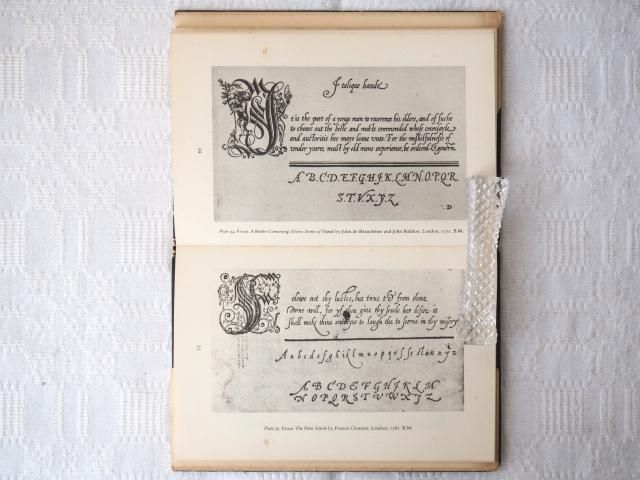 Italique hande
t is the part of a yonge man to reuerence his elders, and of suche
to choose out the beste and moste commended whose counsayle
and auctoritie hee maye leane vnto: For the vnskilfulnesse of
tender yeares must by old mens experience, be ordered & gouern
A.B.C.D.E.F.G.H.I.K.L.M.N.O.P.Q.R
S.T.V.X.Y.Z
.D
34
Plate 34. From A Booke Containing Divers Sortes of Hands by John de Beauchesne and John Baildon. London, 1571. B.M.
olowe not thy lustes, but turne the from thine
owne will, for yf thou give thy soule her desire it
shall make thine enemyes to laugh the to scorne in thy misery
A a b c d e f g h i k l m n o p q r
A B C D E F G H I K L M
N O P Q R S T V W X Y Z
35
Plate 35. From The Petie Schole by Francis Clement. London, 1587. B.M.